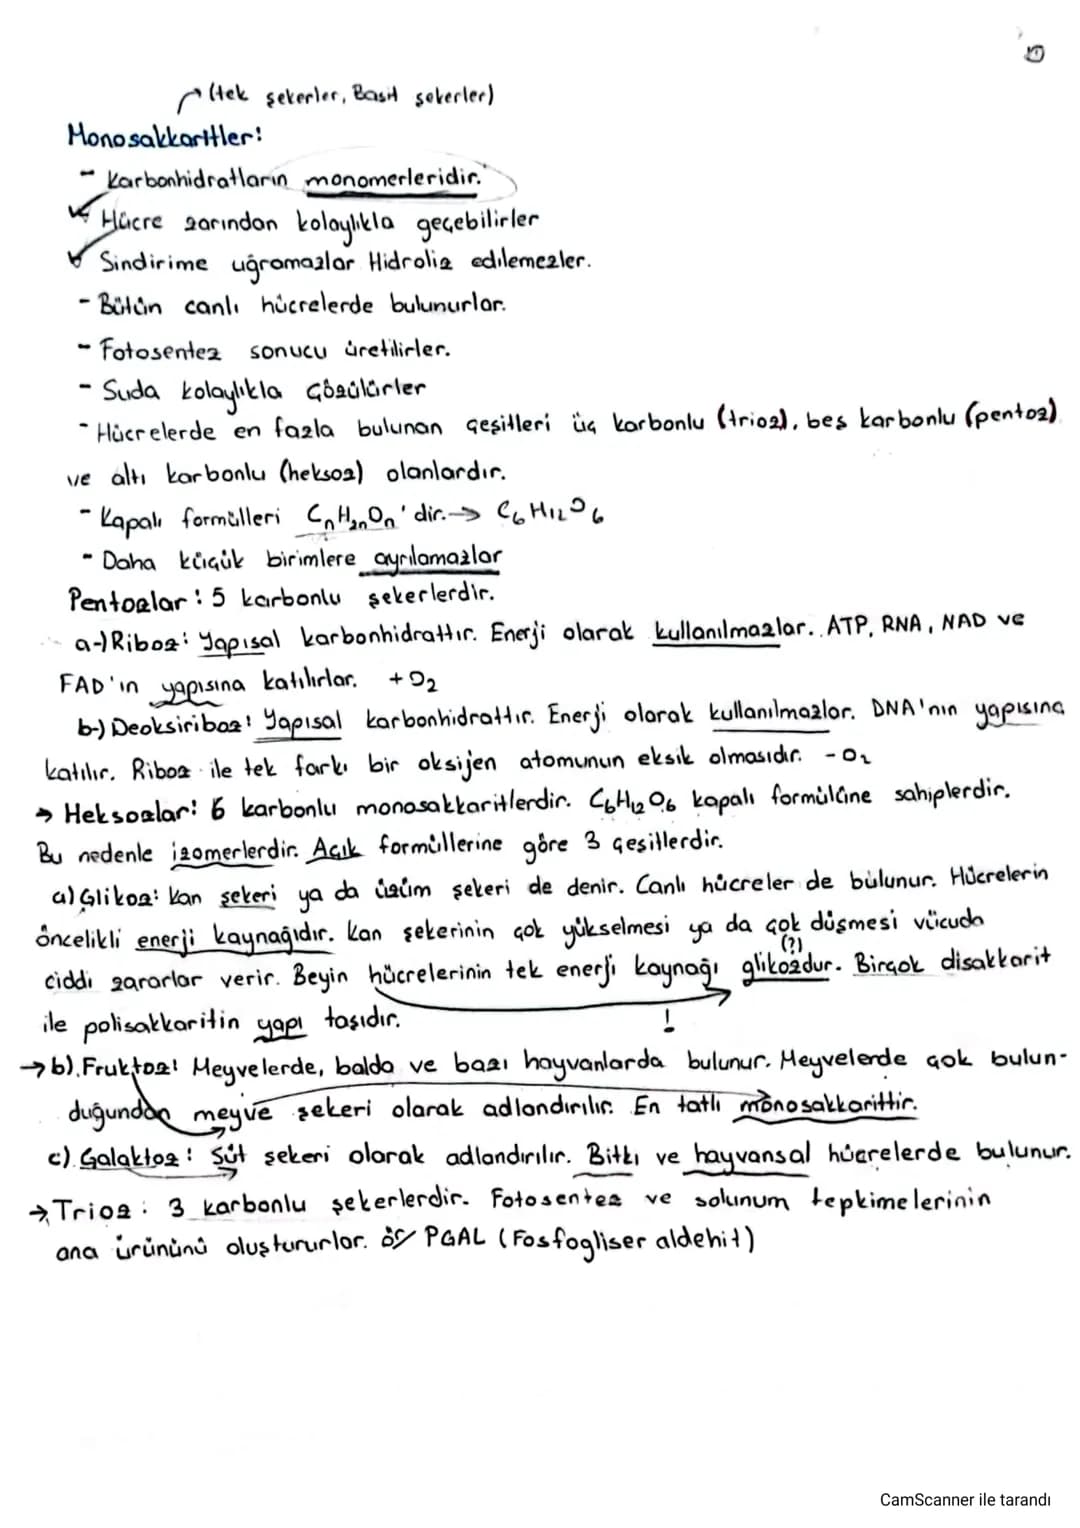 (tek şekerler, Basit şekerler)
Monosakkaritler:
- Karbonhidratların monomerleridir.
Hücre zarından kolaylıkla geçebilirler
Sindirime uğramazlar Hidroliz edilemezler.
- Bütün canlı hücrelerde bulunurlar.
- Fotosentez sonucu üretilirler.
- Suda kolaylıkla çözülürler
- Hücrelerde en fazla bulunan çeşitleri üç karbonlu (trioz), beş karbonlu (pentoz)
ve altı karbonlu (heksoz) olanlardır.
- Kapalı formülleri CnH2nOn' dir. → C6H12O6
- Daha küçük birimlere ayrılamazlar
Pentozlar : 5 karbonlu şekerlerdir.
a-) Riboz: Yapısal karbonhidrattır. Enerji olarak kullanılmazlar. ATP, RNA, NAD ve
FAD'ın yapısına katılırlar. +O2
b-) Deoksiriboz: Yapısal karbonhidrattır. Enerji olarak kullanılmazlar. DNA'nın yapısına
katılır. Riboz ile tek farkı bir oksijen atomunun eksik olmasıdır. -O2
→ Heksozlar: 6 karbonlu monosakkaritlerdir. C6H12O6 kapalı formülüne sahiplerdir.
Bu nedenle izomerlerdir. Açık formüllerine göre 3 çeşitlerdir.
a) Glikoz: Kan şekeri ya da üzüm şekeri de denir. Canlı hücreler de bulunur. Hücrelerin
öncelikli enerji kaynağıdır. Kan şekerinin çok yükselmesi ya da çok düşmesi vücuda
(?)
ciddi zararlar verir. Beyin hücrelerinin tek enerji kaynağı glikozdur. Birçok disakkarit
ile polisakkaritin yapı taşıdır. !
→ b) Fruktoz: Meyvelerde, balda ve bazı hayvanlarda bulunur. Meyvelerde çok bulun-
duğundan meyve şekeri olarak adlandırılır. En tatlı monosakkarittir.
c) Galaktoz : Süt şekeri olarak adlandırılır. Bitki ve hayvansal hücrelerde bulunur.
→ Trioz : 3 karbonlu şekerlerdir. Fotosentez ve solunum tepkimelerinin
ana ürününü oluştururlar. ör/ PGAL (Fosfogliser aldehit)
CamScanner ile tarandı